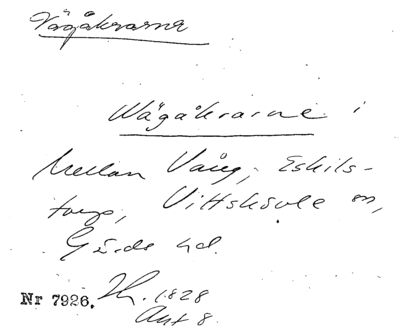 Vägåkrarne
Wägåkrarne i
Mellan Vång, Eskils-
torp, Vittskövle sn,
Gärds hd.
Nr 7926. Th. 1828
Akt 8.